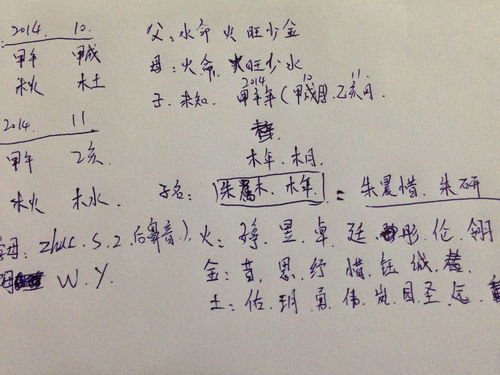 2014. 10.
甲午 甲戌
木火 木土
2014. 11
甲午 乙亥
木火 木水
父:水命 火旺少金
母:火命 火旺少水
2014 10 11
子. 未知. 甲午年(甲戌月.乙亥月.
木年.木月
子名: 朱属木.木年. = 朱晨惜.朱研
字母: zhu s. z. 后鼻音)
W.Y.
火: 昱 卓 廷 彤 伦 翎
金: 首 思 纾 惜 钰 诚
土: 佑 玥 勇 伟 岚 圣 远